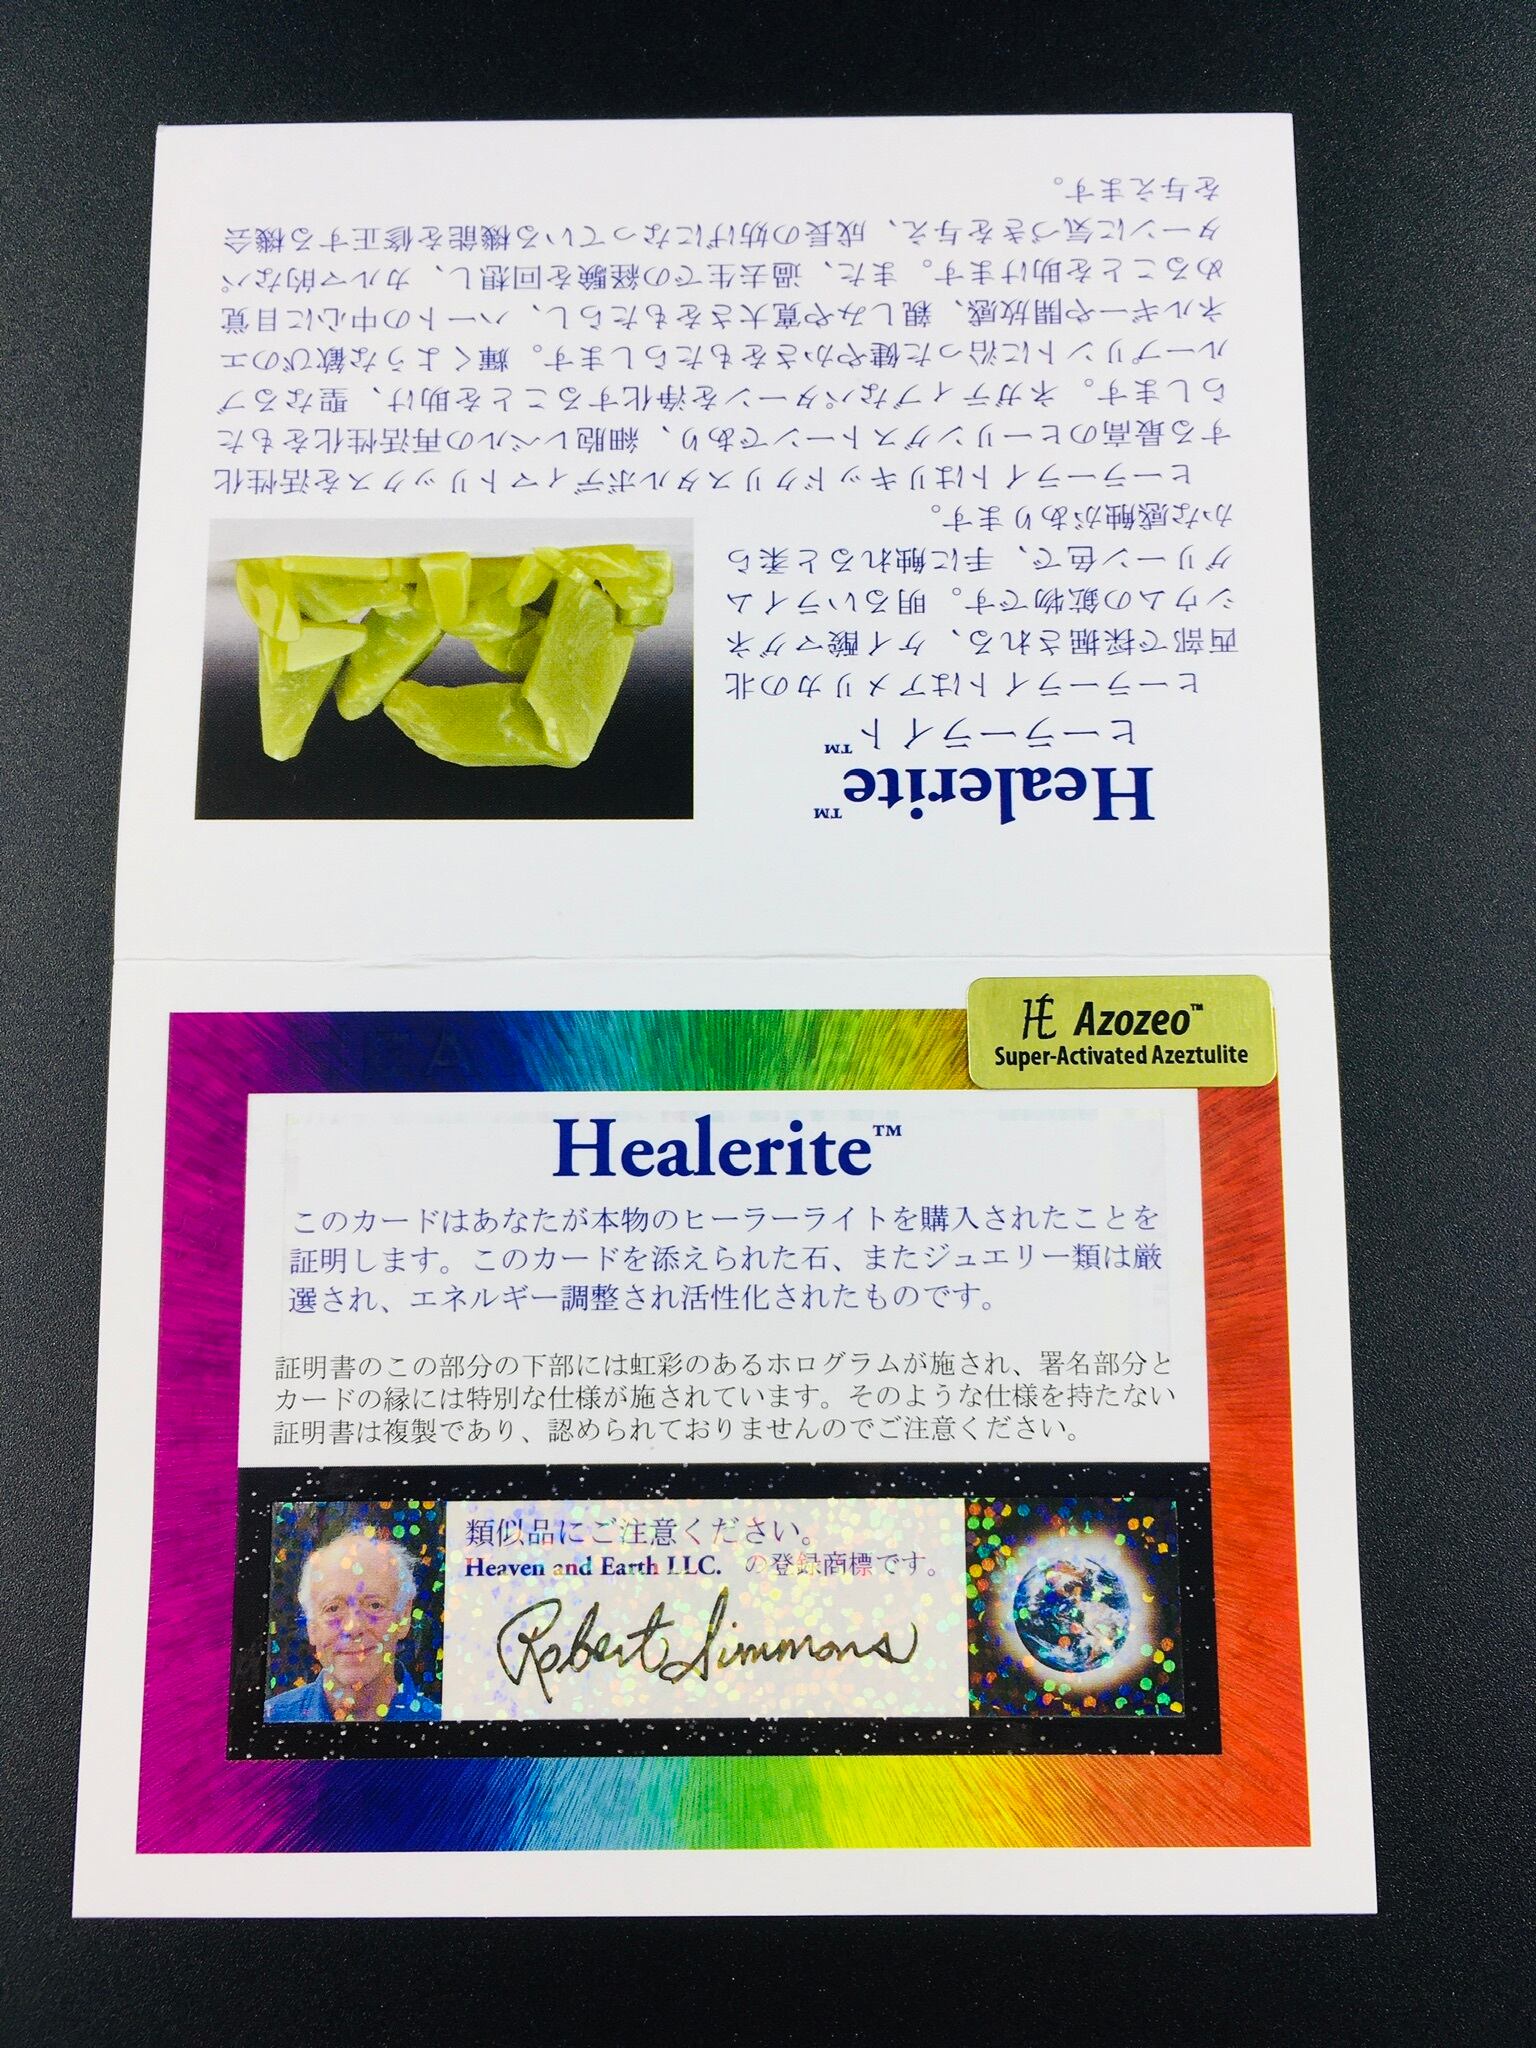 Healerite™
ヒーラーライト™
ヒーラーライトはアメリカの北
西部で採掘される、ケイ酸マグネ
シウムの鉱物です。明るいライム
グリーン色で、手に触れると柔ら
かな感触があります。
ヒーラーライトはリキッドクリスタルボディマトリックスを活性化
する最高のヒーリングストーンであり、細胞レベルの再活性化をもた
らします。ネガティブなパターンを浄化することを助け、聖なるブ
ループリントに沿った健やかさをもたらします。輝くような歓びのエ
ネルギーや開放感、親しみや寛大さをもたらし、ハートの中心に目覚
めることを助けます。また、過去生での経験を回想し、カルマ的なパ
ターンに気づきを与え、成長の妨げになっている機能を修正する機会
を与えます。
HE Azozeo™
Super-Activated Azeztulite
Healerite™
このカードはあなたが本物のヒーラーライトを購入されたことを
証明します。このカードを添えられた石、またジュエリー類は厳
選され、エネルギー調整され活性化されたものです。
証明書のこの部分の下部には虹彩のあるホログラムが施され、署名部分と
カードの縁には特別な仕様が施されています。そのような仕様を持たない
証明書は複製であり、認められておりませんのでご注意ください。
類似品にご注意ください。
Heaven and Earth LLC. の登録商標です。
Robert Simmons